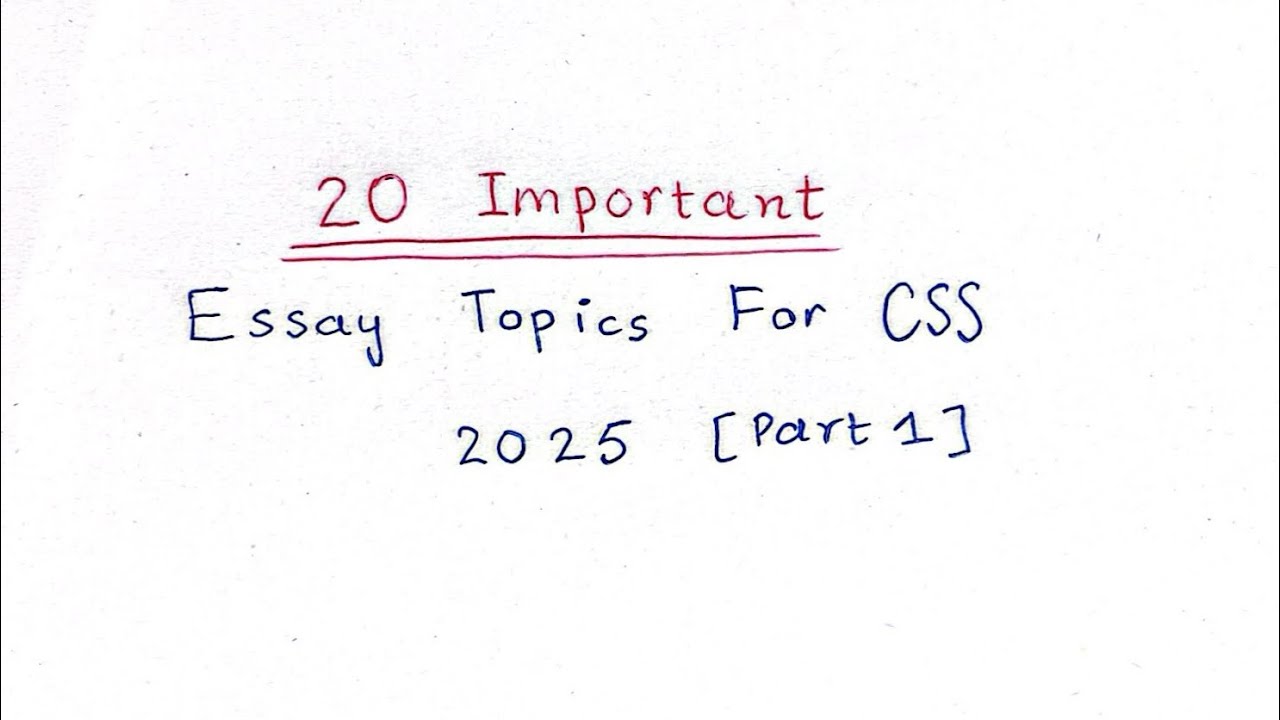 20 Important
Essay Topics For CSS
2025 [Part 1]